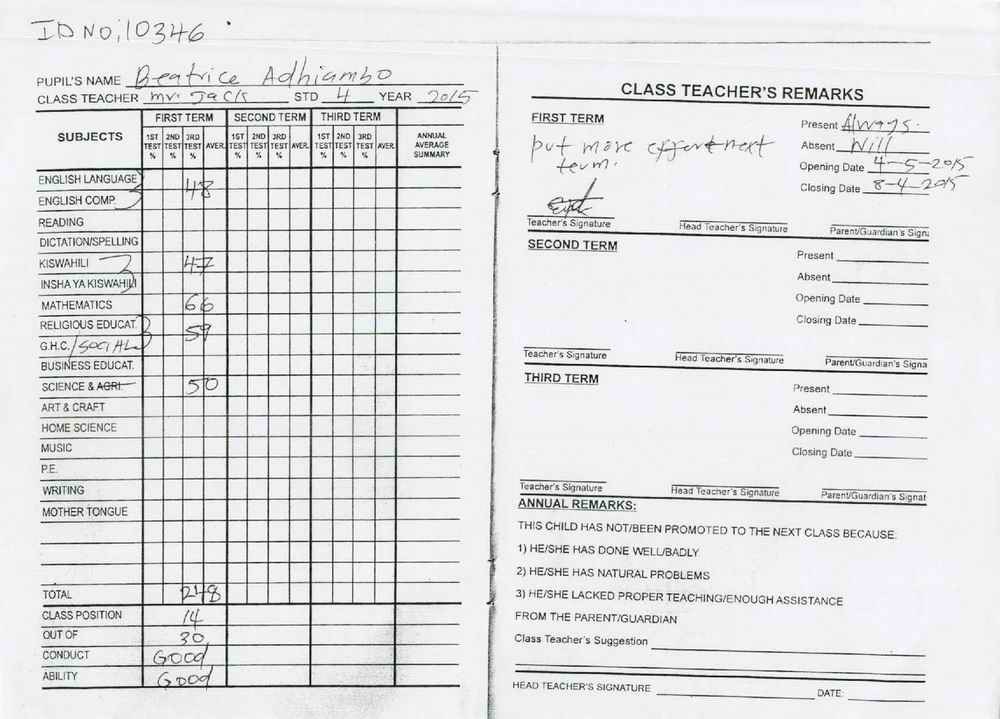 ID NO; 10346
PUPIL'S NAME Beatrice Adhiambo
CLASS TEACHER Mr. Jack STD 4 YEAR 2015
SUBJECTS
FIRST TERM SECOND TERM THIRD TERM
1ST TEST % 2ND TEST % 3RD TEST % AVER. 1ST TEST % 2ND TEST % 3RD TEST % AVER. 1ST TEST % 2ND TEST % 3RD TEST % AVER. ANNUAL AVERAGE SUMMARY
ENGLISH LANGUAGE 48
ENGLISH COMP.
READING
DICTATION/SPELLING
KISWAHILI 47
INSHA YA KISWAHILI
MATHEMATICS 66
RELIGIOUS EDUCAT. 59
G.H.C./SOCIAL
BUSINESS EDUCAT.
SCIENCE & AGRI. 50
ART & CRAFT
HOME SCIENCE
MUSIC
P.E.
WRITING
MOTHER TONGUE
TOTAL 248
CLASS POSITION 14
OUT OF 30
CONDUCT GOOD
ABILITY GOOD
CLASS TEACHER'S REMARKS
FIRST TERM
put more effort next
term.
Present Always.
Absent Will
Opening Date 4-5-2015
Closing Date 8-4-2015
Teacher's Signature Head Teacher's Signature Parent/Guardian's Signa
SECOND TERM
Present
Absent
Opening Date
Closing Date
Teacher's Signature Head Teacher's Signature Parent/Guardian's Signa
THIRD TERM
Present
Absent
Opening Date
Closing Date
Teacher's Signature Head Teacher's Signature Parent/Guardian's Signat
ANNUAL REMARKS:
THIS CHILD HAS NOT/BEEN PROMOTED TO THE NEXT CLASS BECAUSE:
1) HE/SHE HAS DONE WELL/BADLY
2) HE/SHE HAS NATURAL PROBLEMS
3) HE/SHE LACKED PROPER TEACHING/ENOUGH ASSISTANCE
FROM THE PARENT/GUARDIAN
Class Teacher's Suggestion
HEAD TEACHER'S SIGNATURE DATE: